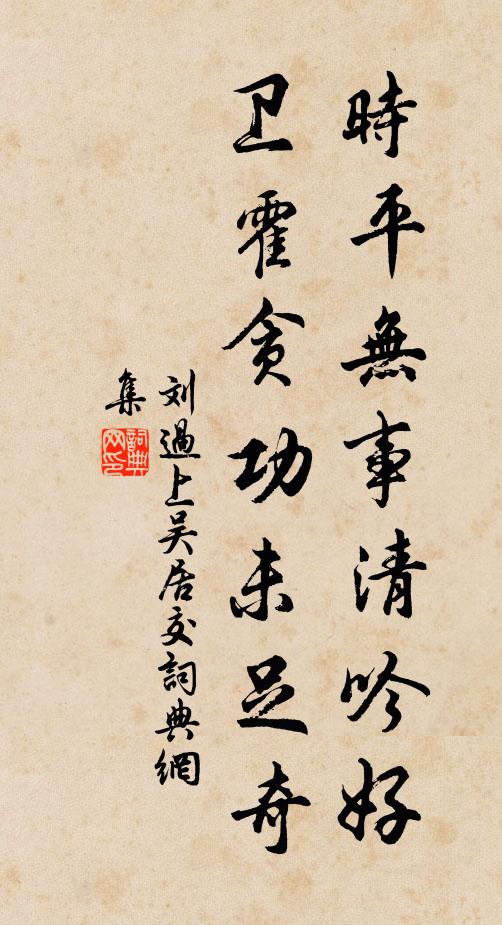 時平無事清吟好
卫霍贪功未足奇
刘過上吴居父詞典網
集
詞典
网印